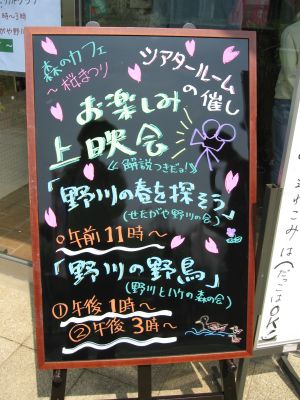 森のカフェ
～桜まつり
シアタールーム
の催し
お楽しみ
上映会
《解説つきだよ!》
「野川の春を探そう」
(せたがや野川の会)
○午前11時～
「野川の野鳥」
(野川とハケの森の会)
①午後1時～
②午後3時～
(だっこはOK!)